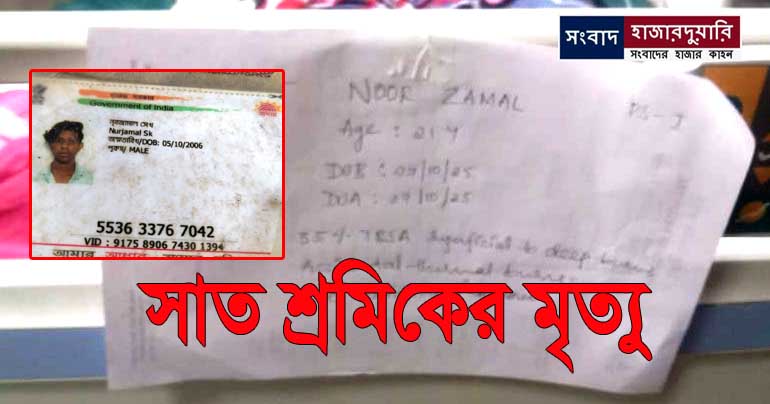 সংবাদ হাজারদুয়ারি
সংবাদের হাজার কাহন
Government of India
নূরজামাল সেখ
Nurjamal Sk
জন্মতারিখ/DOB: 05/10/2006
পুরুষ/ MALE
5536 3376 7042
VID : 9175 8906 7430 1394
NOOR ZAMAL
Age : 21 Y
DOB : 07/10/25
DOA : 07/10/25
55% TBSA superficial to deep burns
সাত শ্রমিকের মৃত্যু